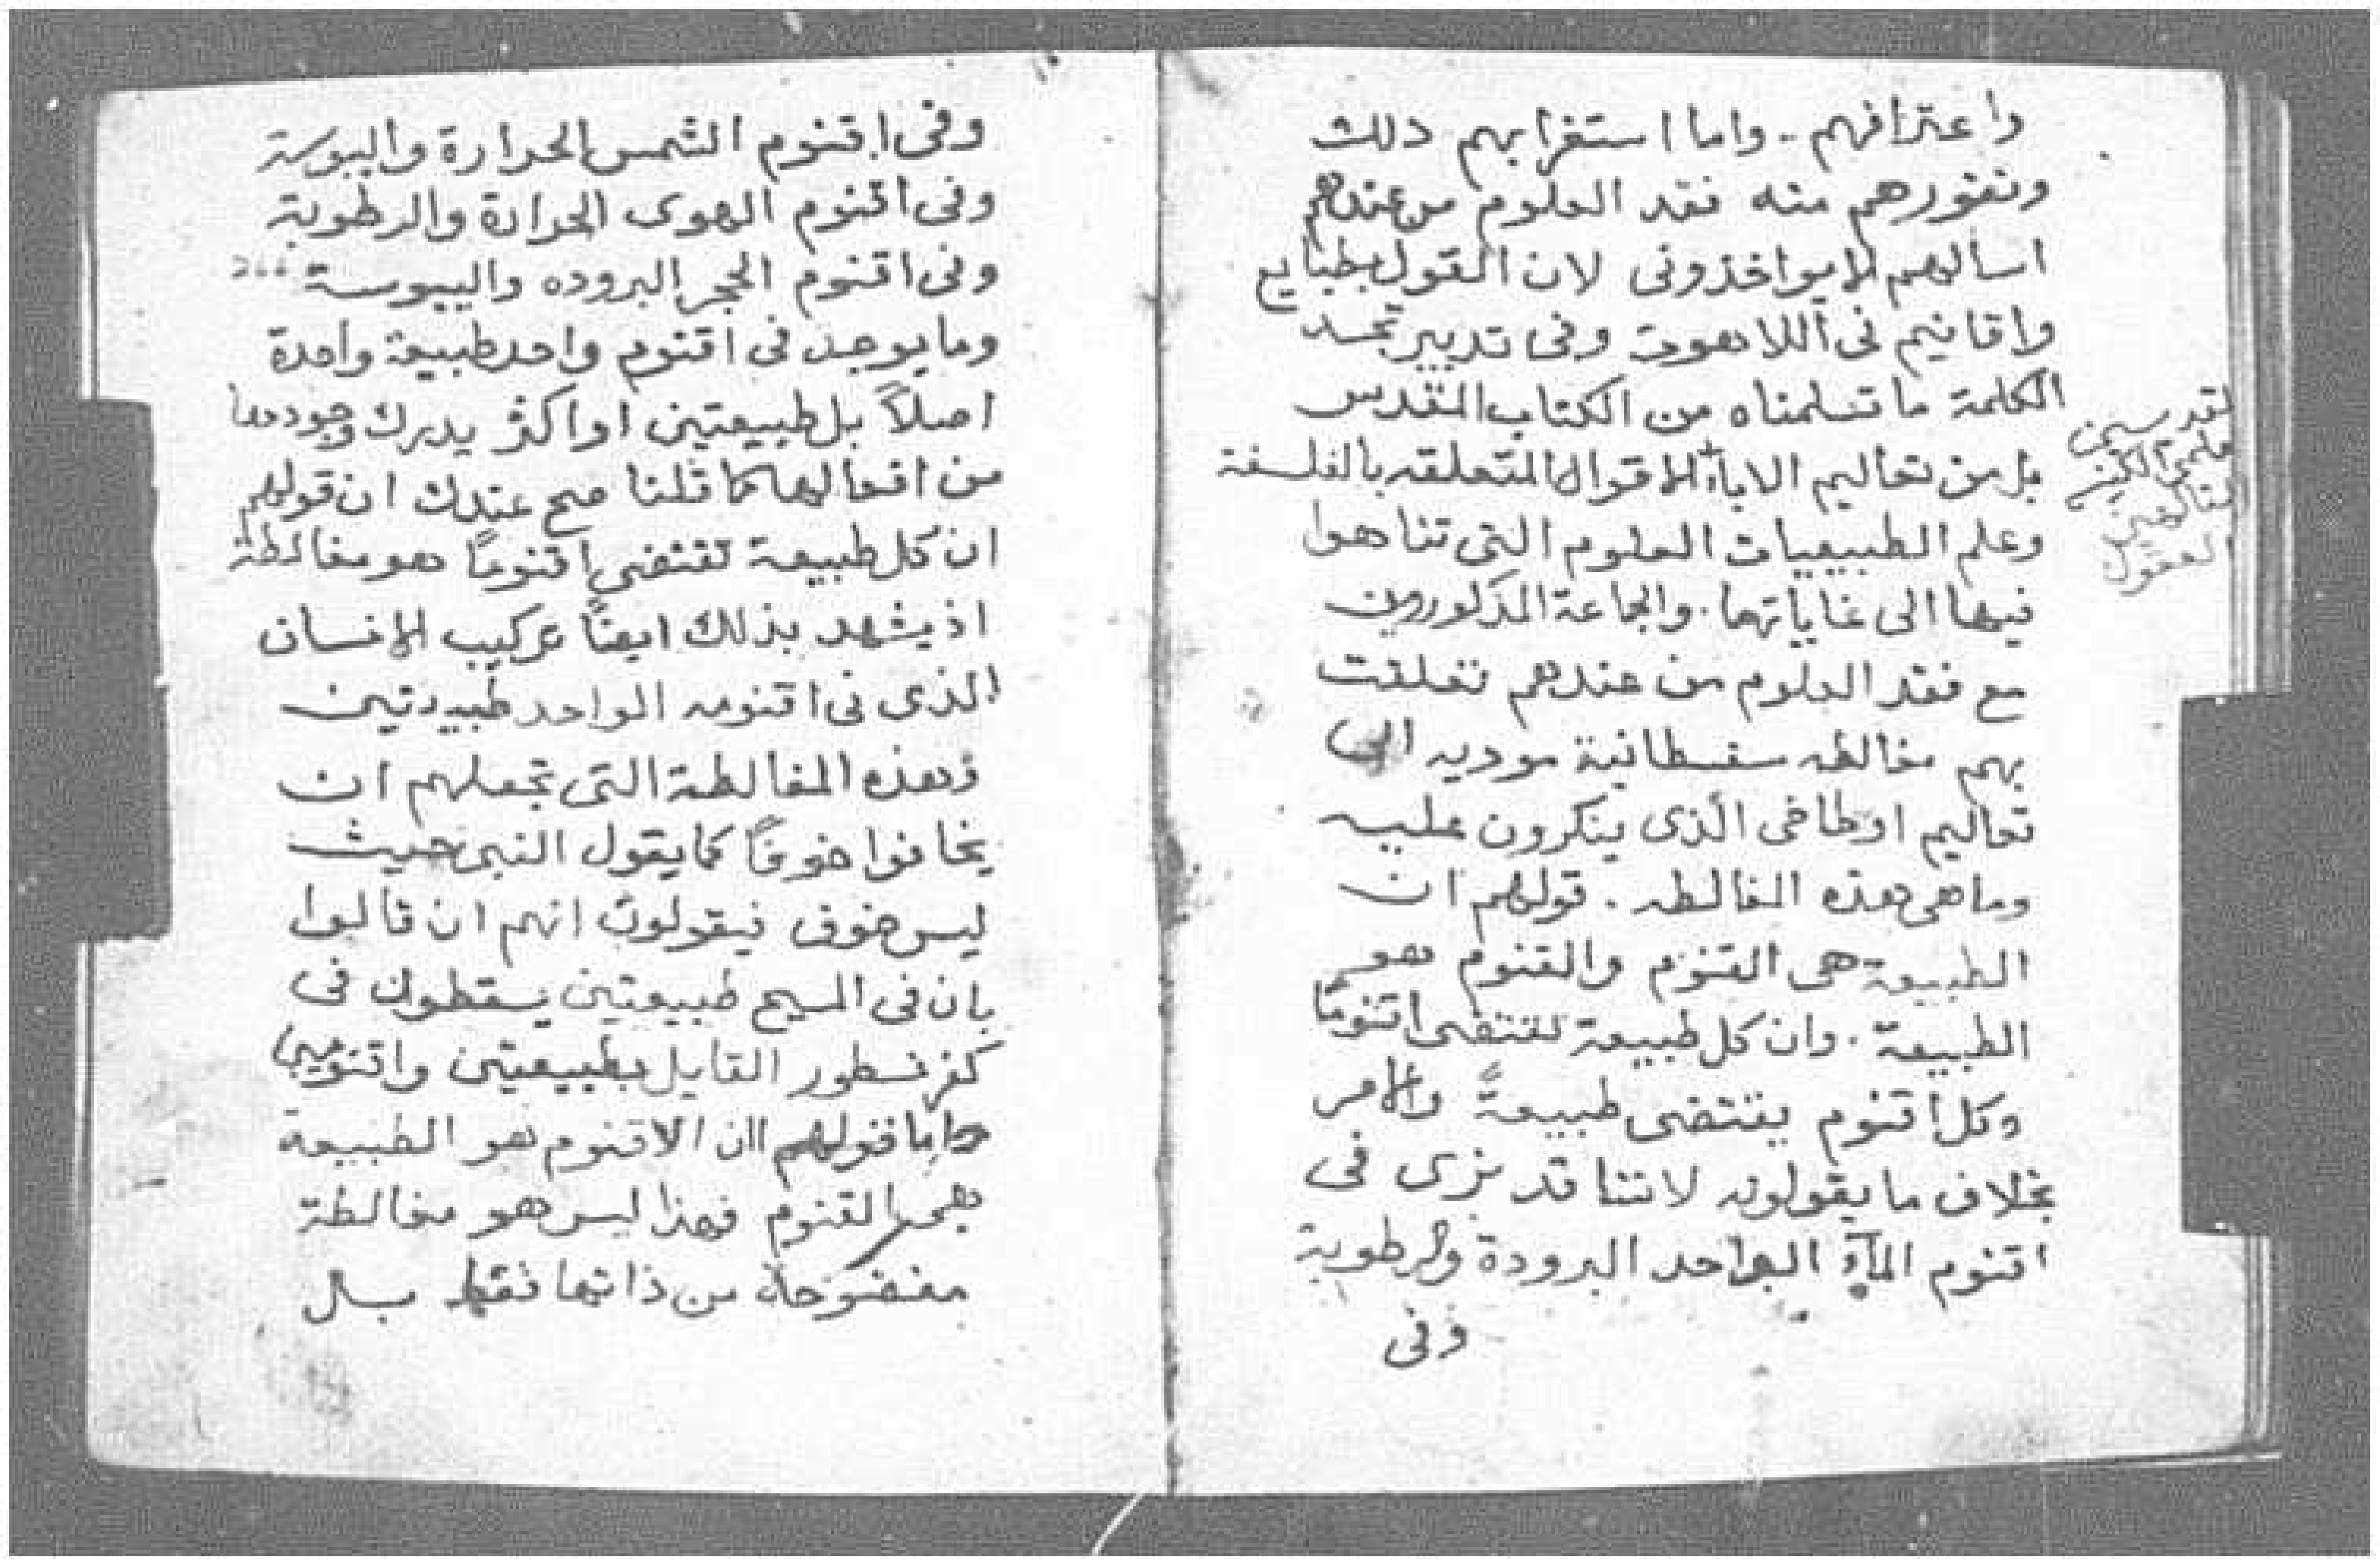 واعترافهم. واما استغرابهم ذلك
ونفورهم منه فقد العلوم من عندهم
اسالهم لا يواخذونى لان القول بطبايع
واقانيم فى اللاهوت وفى تدبير تجسد
الكلمة ما تسلمناه من الكتاب المقدس
بل من تعاليم الاباء الاقوال المتعلقه بالفلسفة
لقديسين
معلمى الكنيسه
العقول
وعلم الطبيعيات العلوم التى تناهوا
فيها الى غاياتها. والجماعة المذكورين
مع فقد العلوم من عندهم تعلقت
بهم مغالطه سفسطانية موديه الى
تعاليم اوطاخى الذى ينكرون عليه
وما هى هذه المغالطه. قولهم ان
الطبيعة هى القنوم والقنوم هو
الطبيعة. وان كل طبيعة تقتضى اقنومًا
وكل اقنوم يقتضى طبيعةً والامر
بخلاف ما يقولونه لاننا قد نرى فى
اقنوم الماء الواحد البرودة والرطوبة
وفى
وفى اقنوم الشمس الحرارة واليبوسة
وفى اقنوم الهوى الحرارة والرطوبة
وفى اقنوم الحجر البروده واليبوسة
وما يوجد فى اقنوم واحد طبيعة واحدة
اصلاً بل طبيعتين او اكثر يدرك وجودها
من افعالها كما قلنا صح عندك ان قولهم
ان كل طبيعة تقتضى اقنومًا هو مغالطة
اذ يشهد بذلك ايضًا تركيب الانسان
الذى فى اقنومه الواحد طبيعتين
فهذه المغالطة التى تجعلهم ان
يخافوا خوفًا كما يقول النبى حيث
ليس خوف فيقولون انهم ان قالوا
بان فى المسيح طبيعتين يسقطون فى
كفر نسطور القايل بطبيعتين واقنومين
واما قولهم ان الاقنوم هو الطبيعة
هى القنوم فهذا ليس هو مغالطة
مفضوحة من ذاتها فقط بل